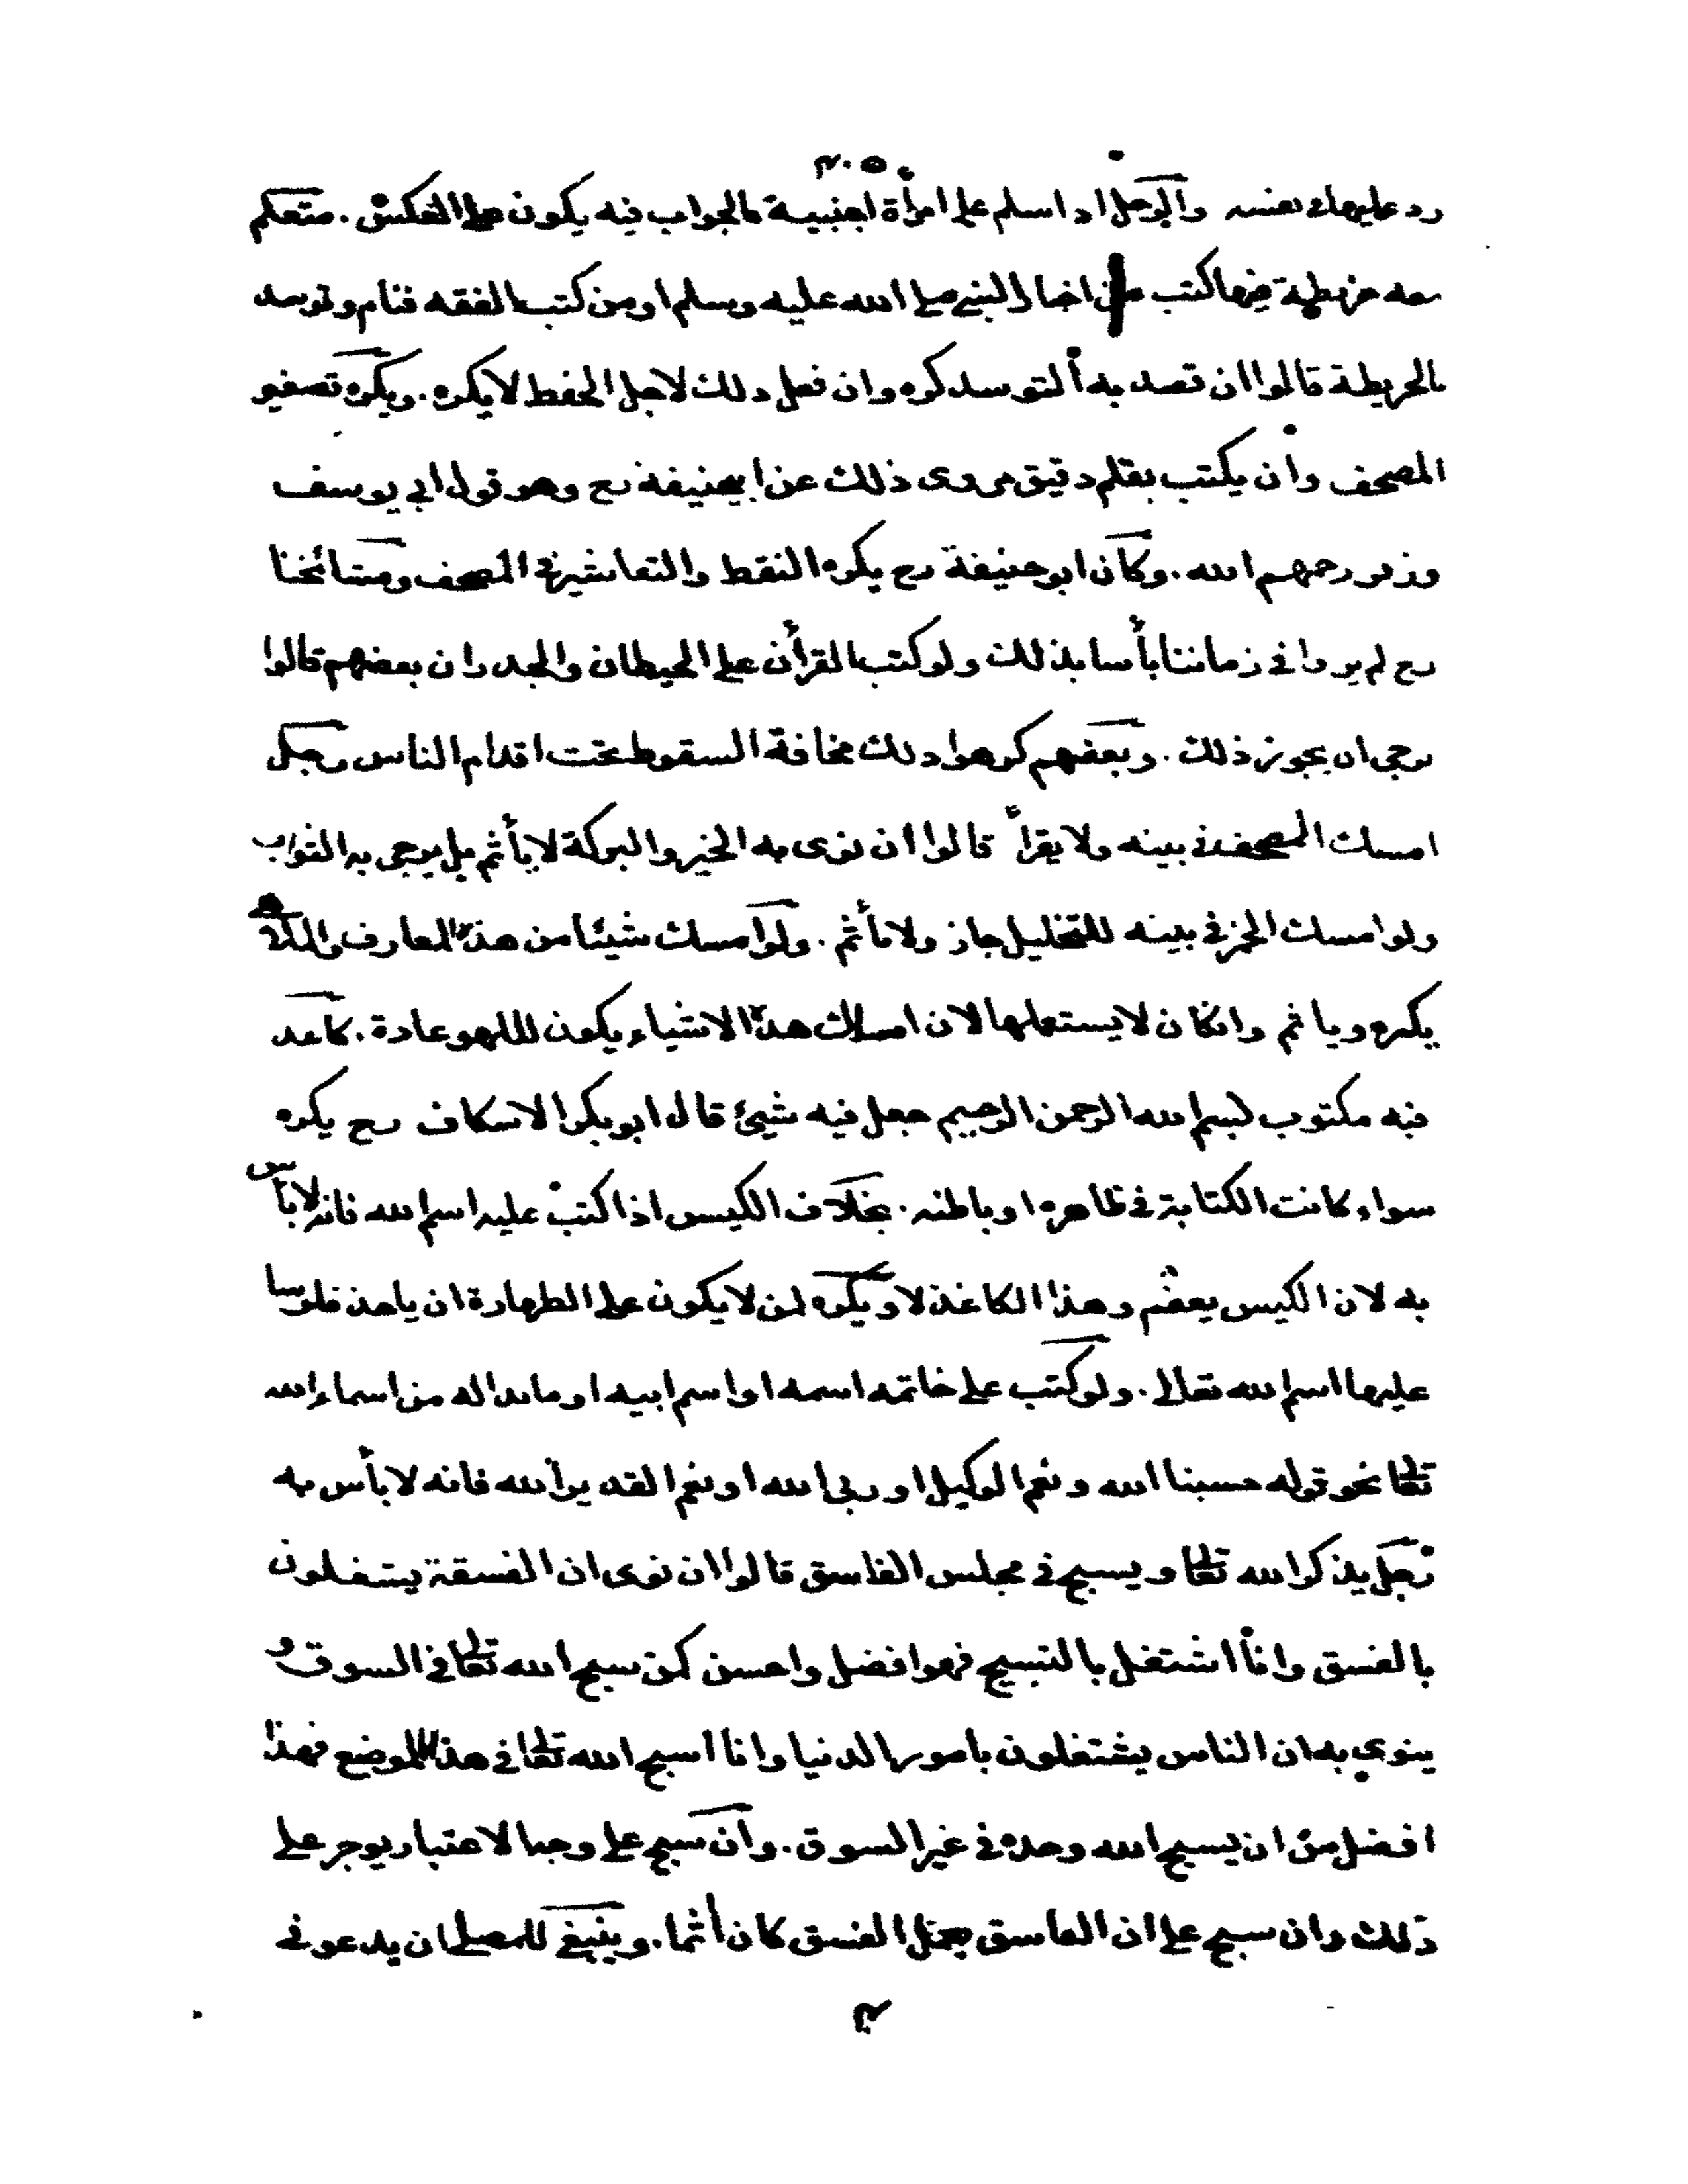 ٢٠٥
رد عليها في نفسه والرجل اذا سلم على امرأة اجنبية فالجواب فيه يكون على العكس . متعلم
معه خريطة فيها كتب من اخبار النبي صلى الله عليه وسلم او من كتب الفقه فنام وتوسد
بالخريطة قالوا ان قصد به التوسد كره وان فعل ذلك لاجل الحفظ لايكره . ويكره تصغير
المصحف وان يكتب بقلم دقيق مروى ذلك عن ابيحنيفة رح وهو قول ابي يوسف
وزفر رحمهم الله . وكان ابو حنيفة رح يكره النقط والتعاشير في المصحف ومشائخنا
رح لم يروا في زماننا بأسا بذلك ولو كتب القرأن على الحيطان والجدران بعضهم قالوا
يرجى ان يجوز ذلك . وبعضهم كرهوا ذلك مخافة السقوط تحت اقدام الناس رجل
امسك المصحف في بيته ولا يقرأ قالوا ان نوى به الخير والبركة لا يأثم بل يرجى به الثواب
ولو امسك الخمر في بيته للتخليل جاز ولا يأثم . ولو امسك شيئا من هذه المعازف والملاهي
يكره ويا ثم وانكان لا يستعملها لان امساك هذه الاشياء يكون لللهو عادة . كاغد
فيه مكتوب بسم الله الرحمن الرحيم جعل فيه شيئ قال ابو بكر الاسكاف رح يكره
سواء كانت الكتابة في ظاهره او باطنه . بخلاف الكيس اذا كتب عليه اسم الله فانه لا بأس
به لان الكيس يعظم وهذا الكاغذ لا ويكره لمن لا يكون على الطهارة ان ياخذ فلوسا
عليها اسم الله تعالى . ولو كتب على خاتمه اسمه او اسم ابيه او ما بدا له من اسماء الله
تعا نحو قوله حسبنا الله ونعم الوكيل او ربي الله او نعم القدير الله فانه لا بأس به
رجل يذكر الله تعا ويسبح في مجلس الفاسق قالوا ان نوى ان الفسقة يشتغلون
بالفسق وانا اشتغل بالتسبيح فهو افضل واحسن كمن سبح الله تعا في السوق و
ينوي به ان الناس يشتغلون بامور الدنيا وانا اسبح الله تعا في هذا الموضع فهذا
افضل من ان يسبح الله وحده في غير السوق . وان سبح على وجه الاعتبار يوجر على
ذلك وان سبح على ان الفاسق يعمل الفسق كان أثما . وينبغي للمصلي ان يدعو في